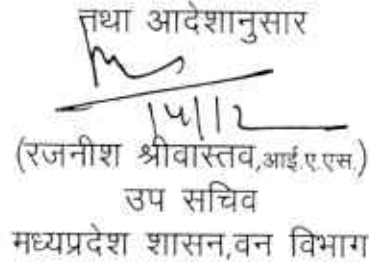 तथा आदेशानुसार
14/12
(रजनीश श्रीवास्तव,आई.ए.एस.)
उप सचिव
मध्यप्रदेश शासन,वन विभाग